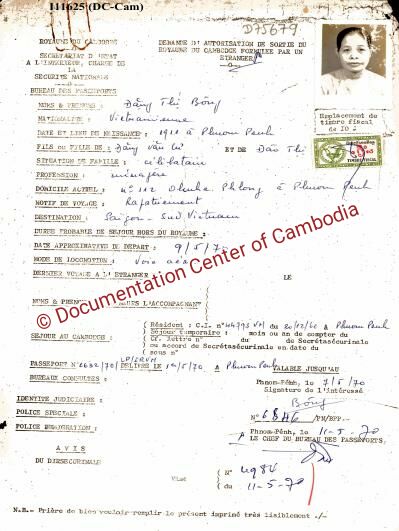 111625 (DC-Cam)
D75679
ROYAUME DU CAMBODGE
SECRETARIAT D'ETAT
A L'INTERIEUR, CHARGE DE
LA
SECURITE NATIONALE
BUREAU DES PASSEPORTS
DEMANDE D'AUTORISATION DE SORTIE DU
ROYAUME DU CAMBODGE FORMULEE PAR UN
ETRANGER
Emplacement de
timbre fiscal
de 10 :
NOMS & PRENOMS : Đặng Thị Bông
NATIONALITE : Vietnamienne
DATE ET LIEU DE NAISSANCE : à Phnom Penh
FILS ou FILLE DE : Đặng văn ET DE Đào Thị
SITUATION DE FAMILLE : célibataire
PROFESSION : ménagère
DOMICILE ACTUEL : à Phnom Penh
MOTIF DE VOYAGE : Rapatriement
DESTINATION : Saigon - Sud Vietnam
DUREE PROBABLE DE SEJOUR HORS DU ROYAUME :
DATE APPROXIMATIVE DE DEPART : 9/5/70
MODE DE LOCOMOTION : Voie
DERNIER VOYAGE A L'ETRANGER LE
NOMS & PRENOMS L'ACCOMPAGNANT
© Documentation Center of Cambodia
SEJOUR AU CAMBODGE :
Résident : C.I. n° du à Phnom Penh
Séjour temporaire : mois ou an de compter du
n° du de Secrétasécurinale
ou accord de Secrétasécurinale en date du
sous n°
PASSEPORT N° DELIVRE LE à Phnom Penh VALABLE JUSQU'AU
BUREAUX CONSULTES :
Phnom-Pénh, le 7/5/70
Signature de l'intéressé
Bông
IDENTITE JUDICIAIRE :
POLICE SPECIALE :
POLICE IMMIGRATION :
N° 6846 /PN/BPP.-
Phnom-Pénh, le 11-5-70
LE CHEF DU BUREAU DES PASSEPORTS,
A V I S
DU DIRSECURINALE
Visé
N° 4984
du 11-5-70
N.B.- Prière de bien vouloir remplir le présent imprimé très lisiblement ./-